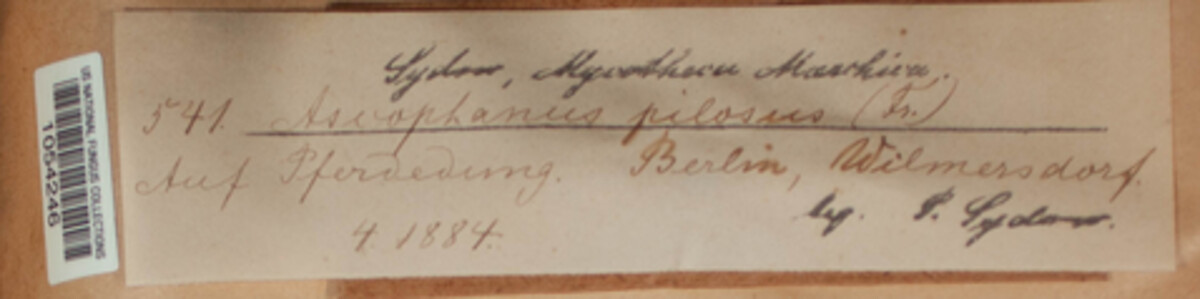 Sydow, Mycotheca Marchica.
541. Ascophanus pilosus (Fr.)
Auf Pferdedung. Berlin, Wilmersdorf.
4. 1884.
leg. P. Sydow.
US NATIONAL FUNGUS COLLECTIONS
1054246